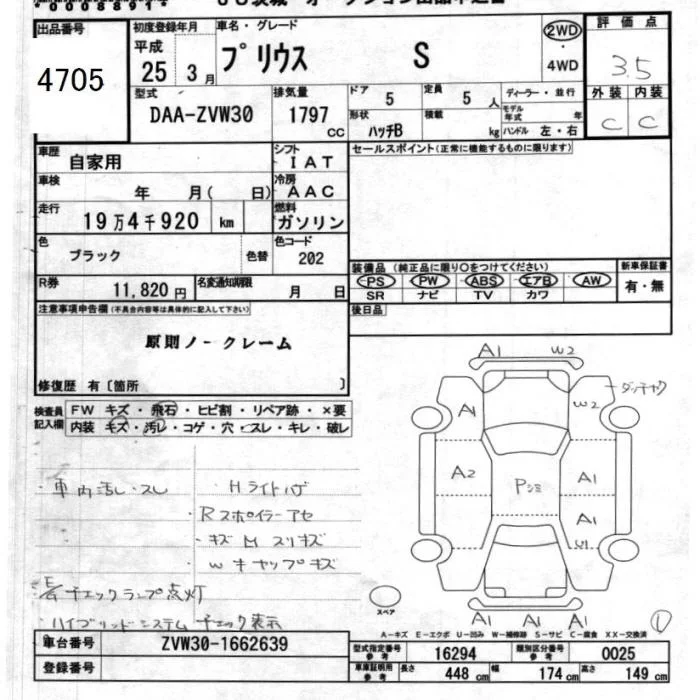 出品番号
4705
初度登録年月 車名・グレード
平成
25 3月 プリウス S
2WD
・
4WD
評価点
3.5
型式 排気量 ドア 定員 ディーラー・並行
DAA-ZVW30 1797 CC 5 5 人
形状 積載 モデル年式 年
ハッチB kg ハンドル 左・右
外装 内装
C C
車歴 自家用 シフト IAT
セールスポイント(正常に機能するものに限ります)
車検 年 月( 日) 冷房 AAC
走行 19万4千920 km 燃料 ガソリン
色 ブラック 色替 色コード 202
装備品 (純正品に限り○をつけてください) 新車保証書
PS PW ABS エアB AW 有・無
SR ナビ TV カワ
R券 11,820円 名変通知期限 月 日
後日品
注意事項申告欄(不具合内容等は具体的に記入して下さい)
原則ノークレーム
修復歴 有〔箇所 〕
検査員記入欄
FW キズ・飛石・ヒビ割・リペア跡・×要
内装 キズ・汚レ・コゲ・穴・スレ・キレ・破レ
・車内汚レ・スレ
Hライトハゲ
・Rスポイラーアセ
・キズ M スリキズ
・W キャップキズ
チェックランプ点灯
ハイブリッドシステムチェック表示
A1 W2
A1 W2
A2 Pシミ A1
A1
W1
A1 A1 A1
スペア
①
A－キズ E－エクボ U－凹み W－補修跡 S－サビ C－腐食 XX－交換済
車台番号 ZVW30-1662639
登録番号
型式指定番号 参考 16294 類別区分番号 参考 0025
車庫証明用 参考 長さ 448 cm 幅 174 cm 高さ 149 cm